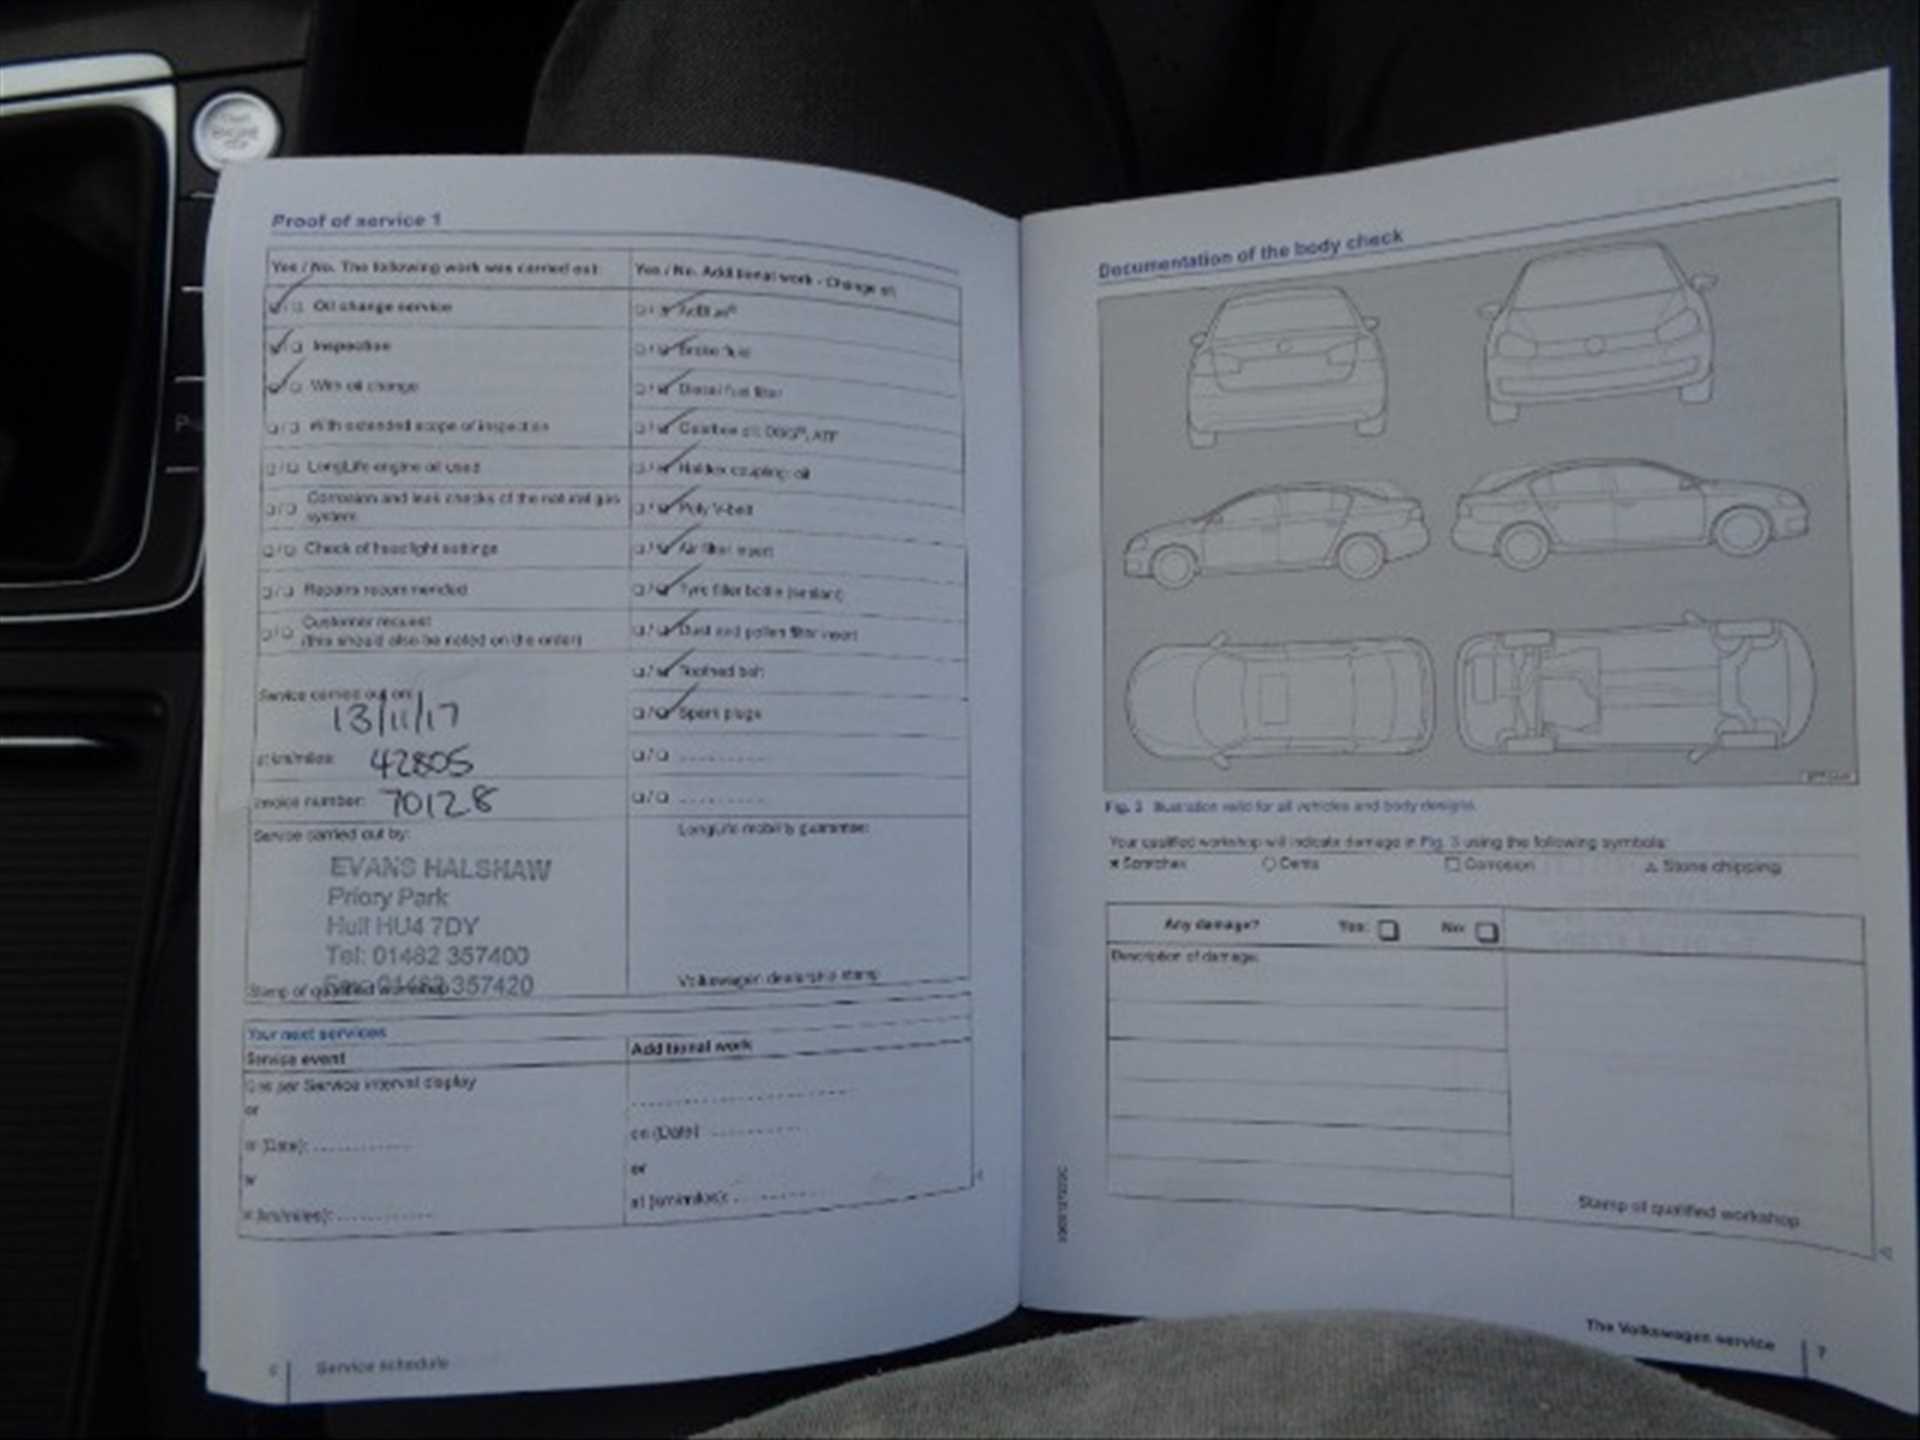 START
ENGINE
STOP
P
Proof of service 1
Yes / No. The following work was carried out:
❏ / ❏ Oil change service
❏ / ❏ Inspection
❏ / ❏ With oil change
❏ / ❏ With extended scope of inspection
❏ / ❏ LongLife engine oil used
❏ / ❏ Corrosion and leak checks of the natural gas
system
❏ / ❏ Check of headlight settings
❏ / ❏ Repairs recommended
❏ / ❏ Customer request
(this should also be noted on the order)
Service carried out on:
13/11/17
at km/miles: 42805
Invoice number: 70128
Service carried out by:
EVANS HALSHAW
Priory Park
Hull HU4 7DY
Tel: 01482 357400
Fax: 01482 357420
Stamp of qualified workshop
Yes / No. Additional work - Change of:
❏ / ❏ AdBlue®
❏ / ❏ Brake fluid
❏ / ❏ Diesel fuel filter
❏ / ❏ Gearbox oil: DSG®, ATF
❏ / ❏ Haldex coupling: oil
❏ / ❏ Poly V-belt
❏ / ❏ Air filter insert
❏ / ❏ Tyre filler bottle (sealant)
❏ / ❏ Dust and pollen filter insert
❏ / ❏ Toothed belt
❏ / ❏ Spark plugs
❏ / ❏ ............
❏ / ❏ ............
LongLife mobility guarantee:
Volkswagen dealership stamp
Your next services
Service event
❏ as per Service interval display
or
on (Date): ............
or
at (km/miles): ............
Additional work
............................
on (Date): ............
or
at (km/miles): ............
6 Service schedule
Documentation of the body check
Fig. 3 Illustration valid for all vehicles and body designs.
Your qualified workshop will indicate damage in Fig. 3 using the following symbols:
× Scratches ○ Dents □ Corrosion △ Stone chipping
Any damage? Yes: ❏ No: ❏
Description of damage:
Stamp of qualified workshop
The Volkswagen service 7